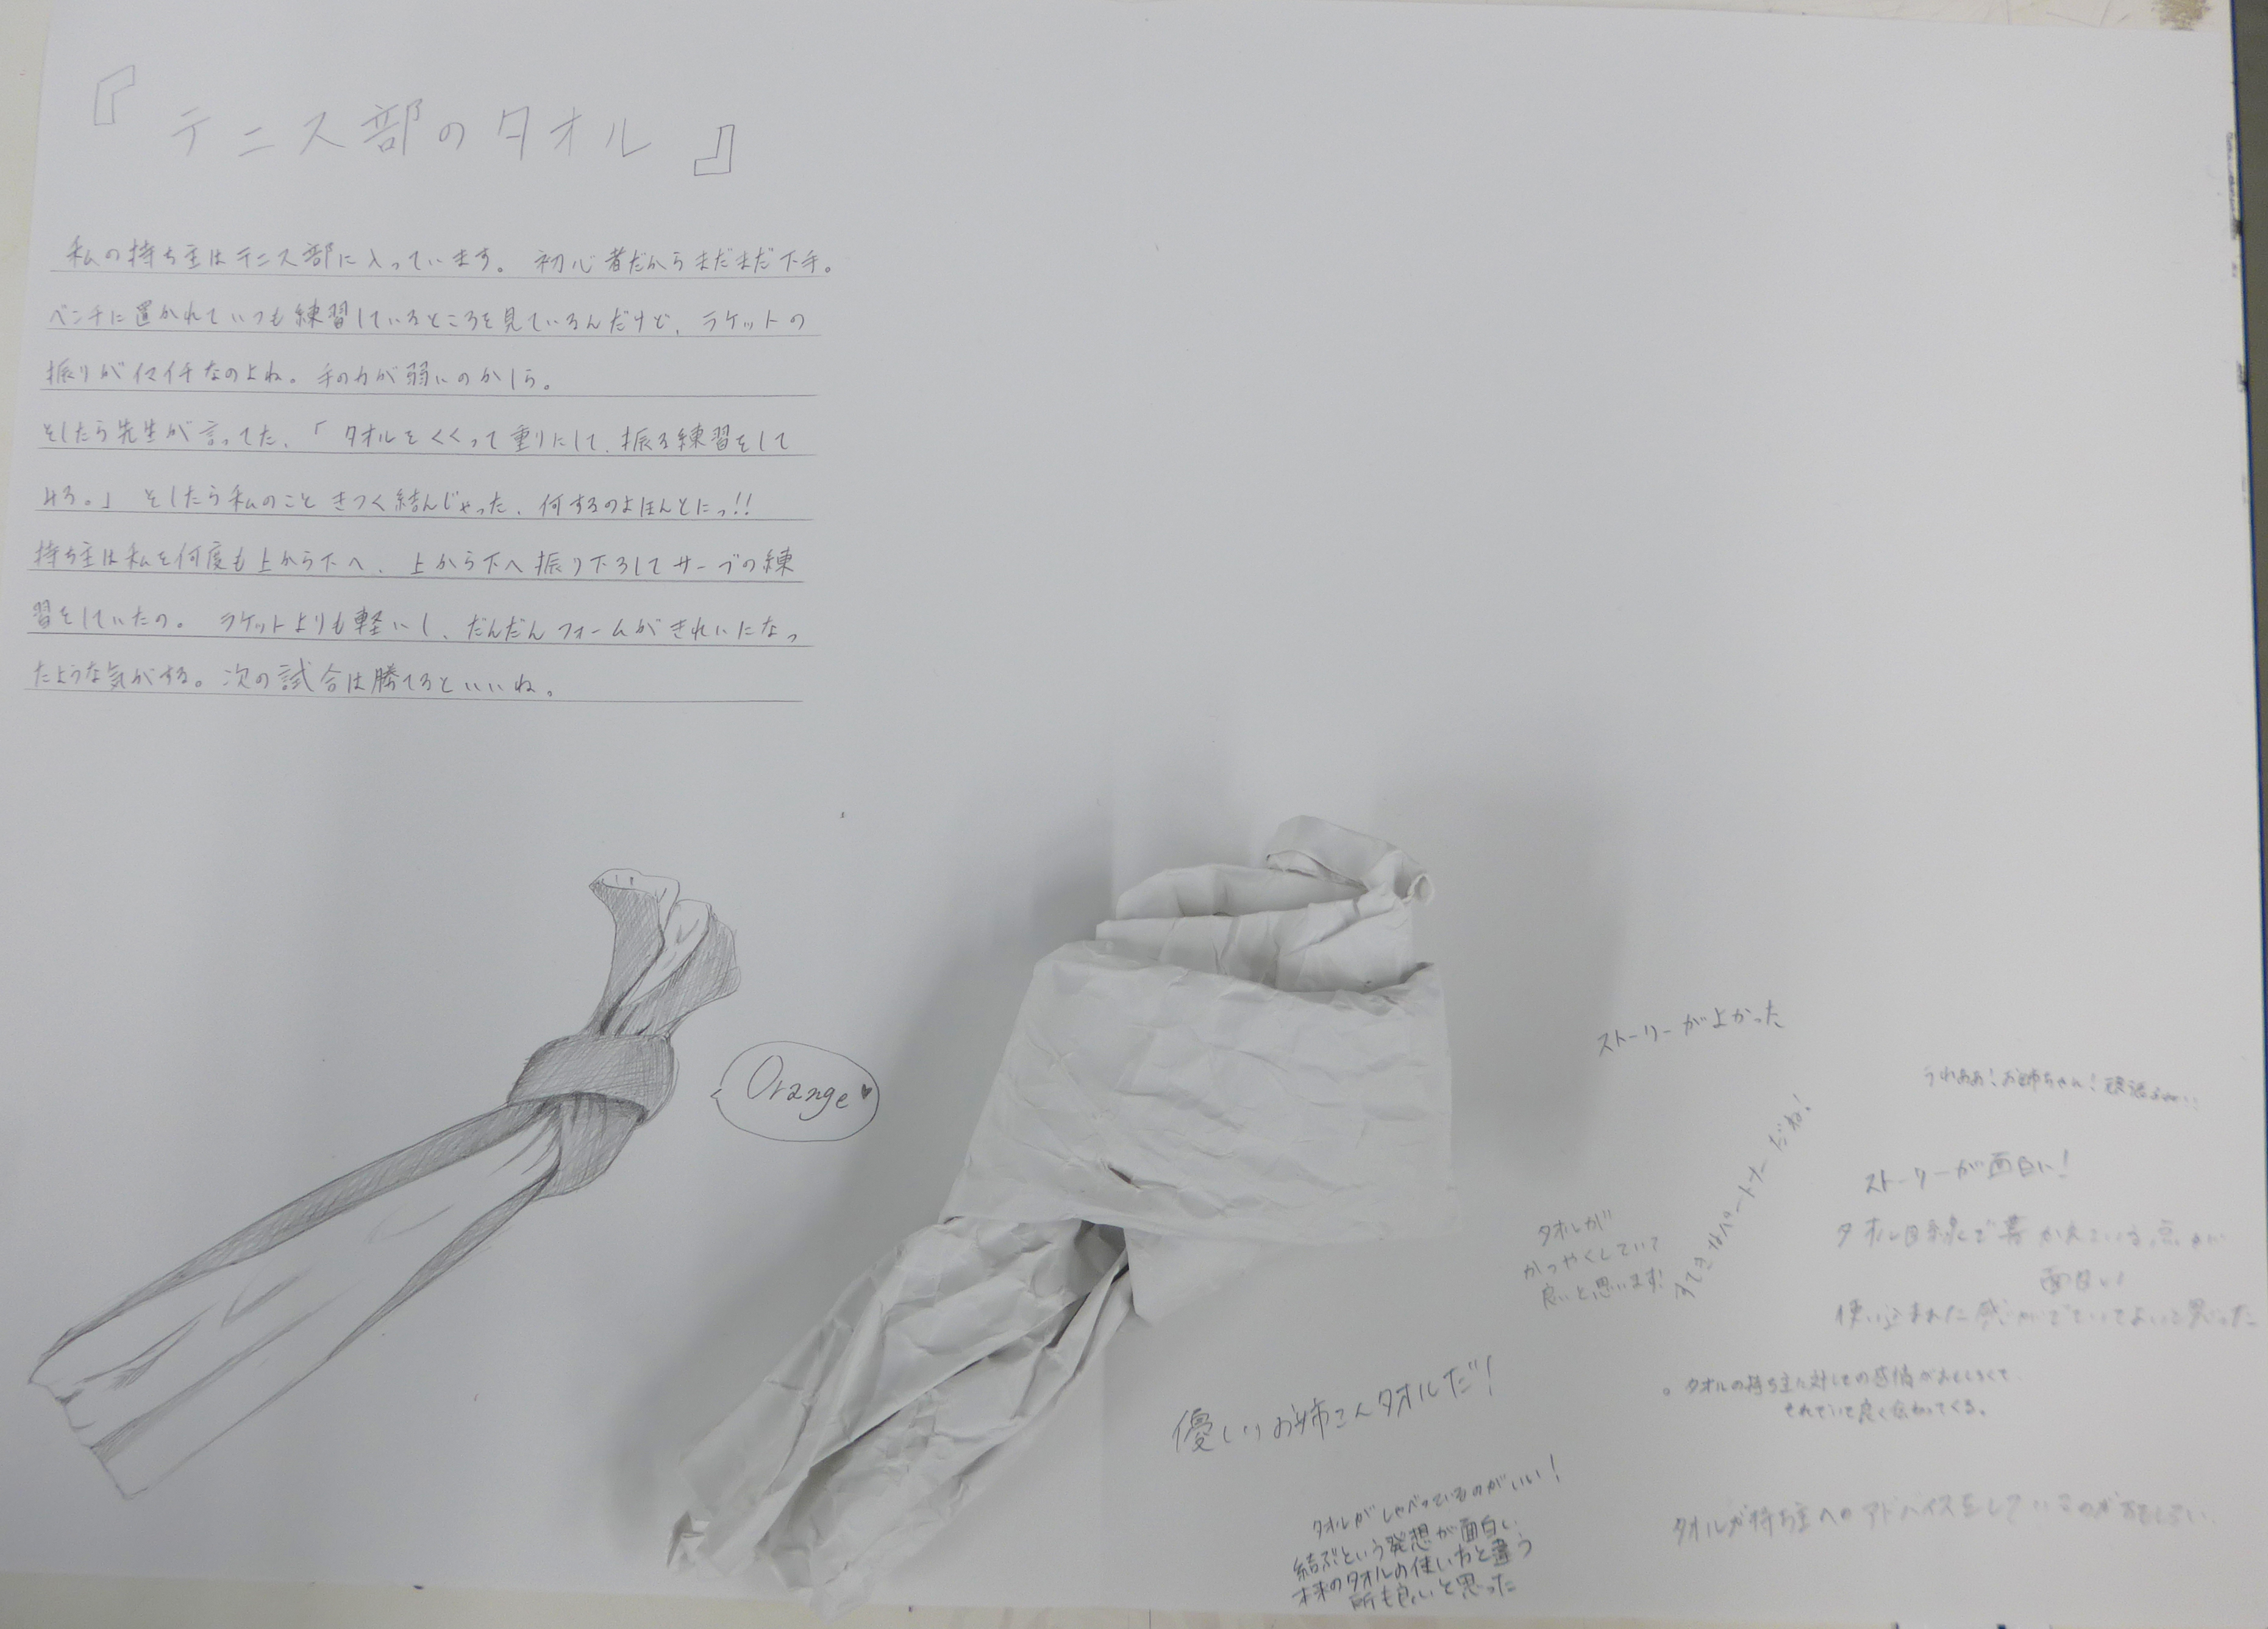 『テニス部のタオル』
私の持ち主はテニス部に入っています。初心者だからまだまだ下手。
ベンチに置かれていつも練習しているところを見ているんだけど、ラケットの
振りがイマイチなのよね。手の力が弱いのかしら。
そしたら先生が言ってた、「タオルをくくって重りにして、振る練習をして
みろ。」そしたら私のこときつく結んじゃった、何するのよほんとにっ!!
持ち主は私を何度も上から下へ、上から下へ振り下ろしてサーブの練
習をしていたの。ラケットよりも軽いし、だんだんフォームがきれいになっ
たような気がする。次の試合は勝てるといいね。
Orange♥
ストーリーが良かった
お姉ちゃん!
すてきなパートナーだね!
ストーリーが面白い!
タオルが
かつやくしていて
良いと思います!
タオル目線で書かれている点が
面白い
使い込まれた感がでていてよいと思った
優しいお姉さんタオルだ!
。タオルの持ち主に対しての感情がおもしろくて
それでいて良く伝わってくる。
タオルがしゃべっているのがいい!
結ぶという発想が面白い
本来のタオルの使い方と違う
所も良いと思った
タオルが持ち主へのアドバイスをして